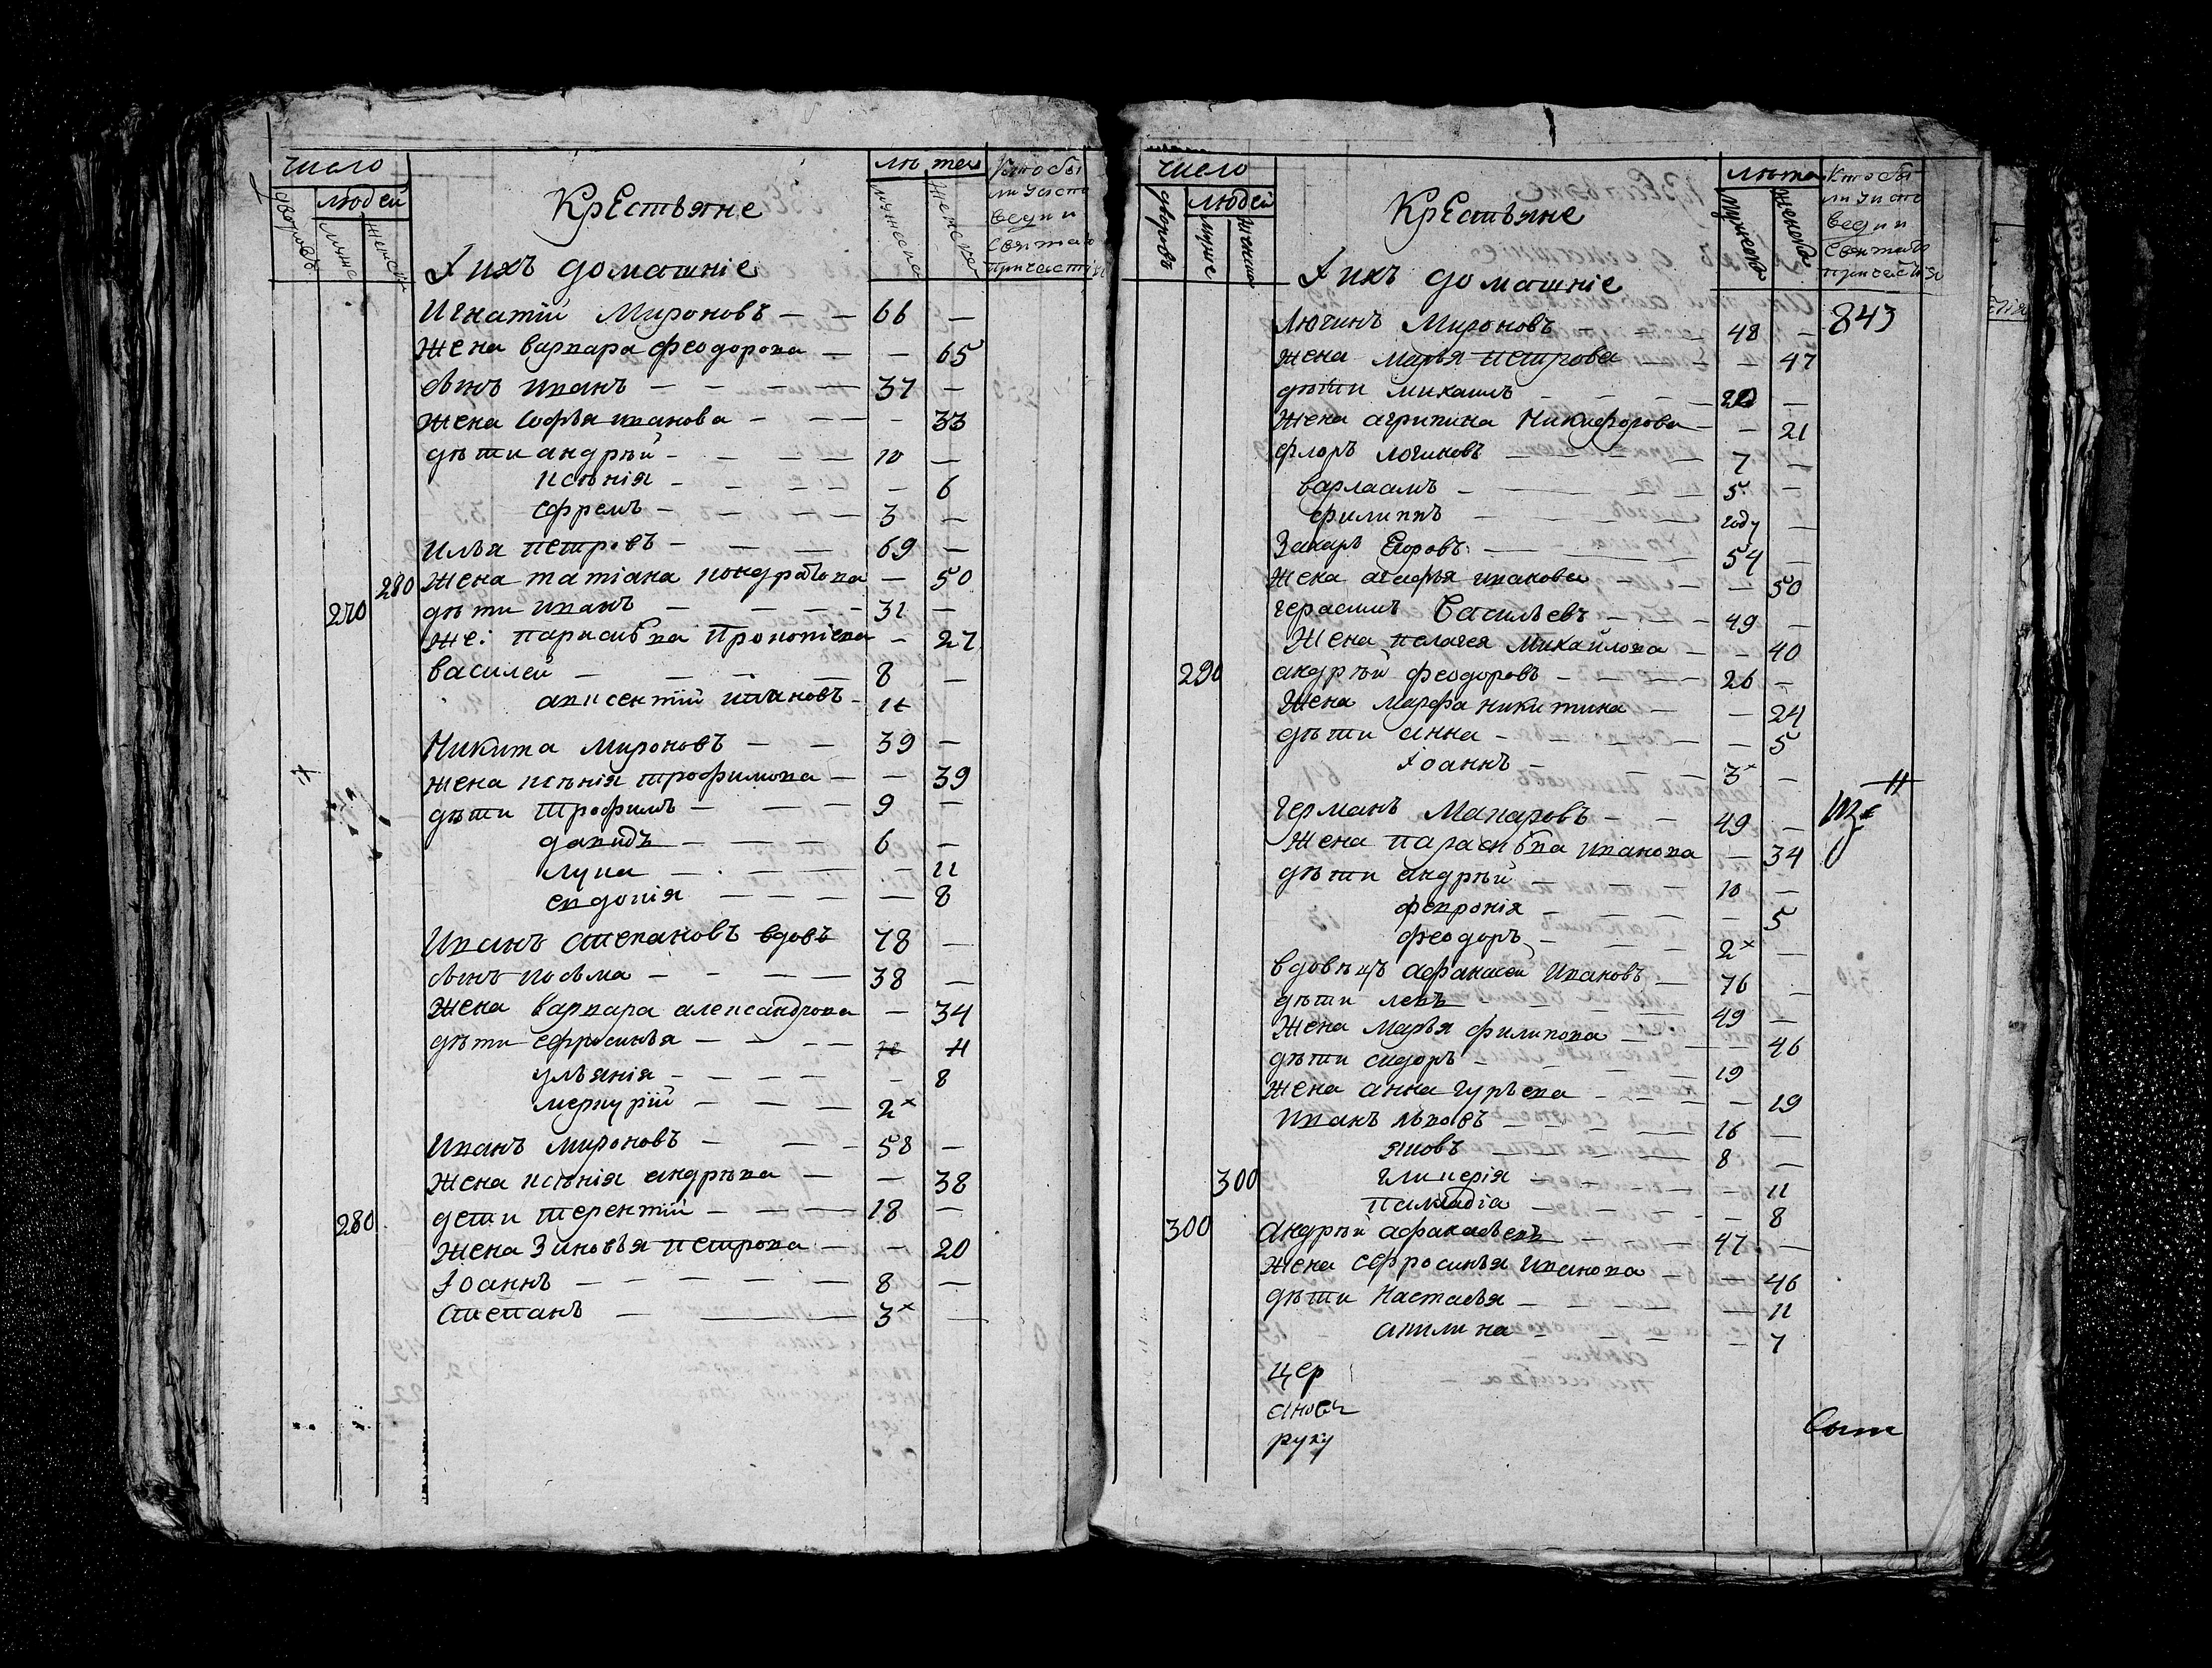 число
людей
дворовъ
муже
женска
Крестьяне
Ꙇ ихъ домашніе
лѣтех
мужеска
женска
Кто бы
ли у испо
веди и
Святаго
Причастія
Игнатій Мироновъ — — 66 —
Жена варвара феодорова — — 65
сынъ иванъ — — — — 37 —
Жена Софья иванова — — — 33
дѣти андрѣй — — — — 10 —
ксѣнія — — — — — 6
Ефремъ — — — — 3 —
Илья петровъ — — — 69 —
280 Жена татіана кондратова — 50
270 дѣти иванъ — — — — 31 —
Же: параскѣва Прокопіева — 27
василей — — — — 8 —
авксентій ивановъ —
Никита Мироновъ — — 39 —
жена ксѣнія трофимова — — 39
дѣти трофимъ — — — 9 —
давидъ — — — 6 —
лука — — — — 11
евдокія — — — — — 8
Иванъ степановъ вдовъ 78 —
сынъ козьма — — — 38 —
Жена варвара александрова — 34
дѣти Ефросинья — — — —
ульянія — — — — — 8
меркурій — — — 2ˣ
Иванъ мироновъ — — — 58 —
Жена ксѣнія андрѣва — — 38
280 дети терентій — — — 18 —
Жена Зиновья петрова — — 20
Іоаннъ — — — — — 8 —
степанъ — — — 3ˣ —
число
людей
дворовъ
муже
женска
Крестьяне
Ꙇ ихъ домашніе
лѣта
мужеска
женска
Кто бы
ли у испо
веди и
Святаго
причастія
Логинъ Мироновъ — — — 48 — 843
жена марья петрова — — — 47
дѣти михаилъ — — — —
Жена агрипина Никифорова — — 21
флоръ логиновъ — — — — 7 —
варлаамъ — — — — 5 —
филиппъ — — — — году —
Захаръ Егоровъ — — 54 —
жена агафья иванова — — — 50
герасимъ Васильевъ — — — 49 —
Жена пелагея михайлова — — 40
290 андрѣй феодоровъ — — — 26 —
Жена марфа никитина — — 24
дѣти анна — — — — — 5
Іоаннъ — — — 3ˣ —
Германъ Макаровъ — — 49 —
Жена параскѣва иванова — 34
дѣти андрѣй — — — 10 —
февронія — — — — 5
феодоръ — — — 2ˣ —
вдовецъ афанасей Ивановъ — 76 —
дѣти левъ — — — 49 —
Жена марья филипова — — 46
дѣти сидоръ — — — 19
Жена анна гурьева — — — — 19
Иванъ львовъ — — — 16 —
яковъ — — — 8 —
300 гликерія — — — — — 11
палладіа — — — — — 8
300 андрѣй афанасьевъ — — — 47 —
Жена Ефросинья иванова — — 46
дѣти Настасья — — — — 11
акилина — — — — 7
цер
анова
руку